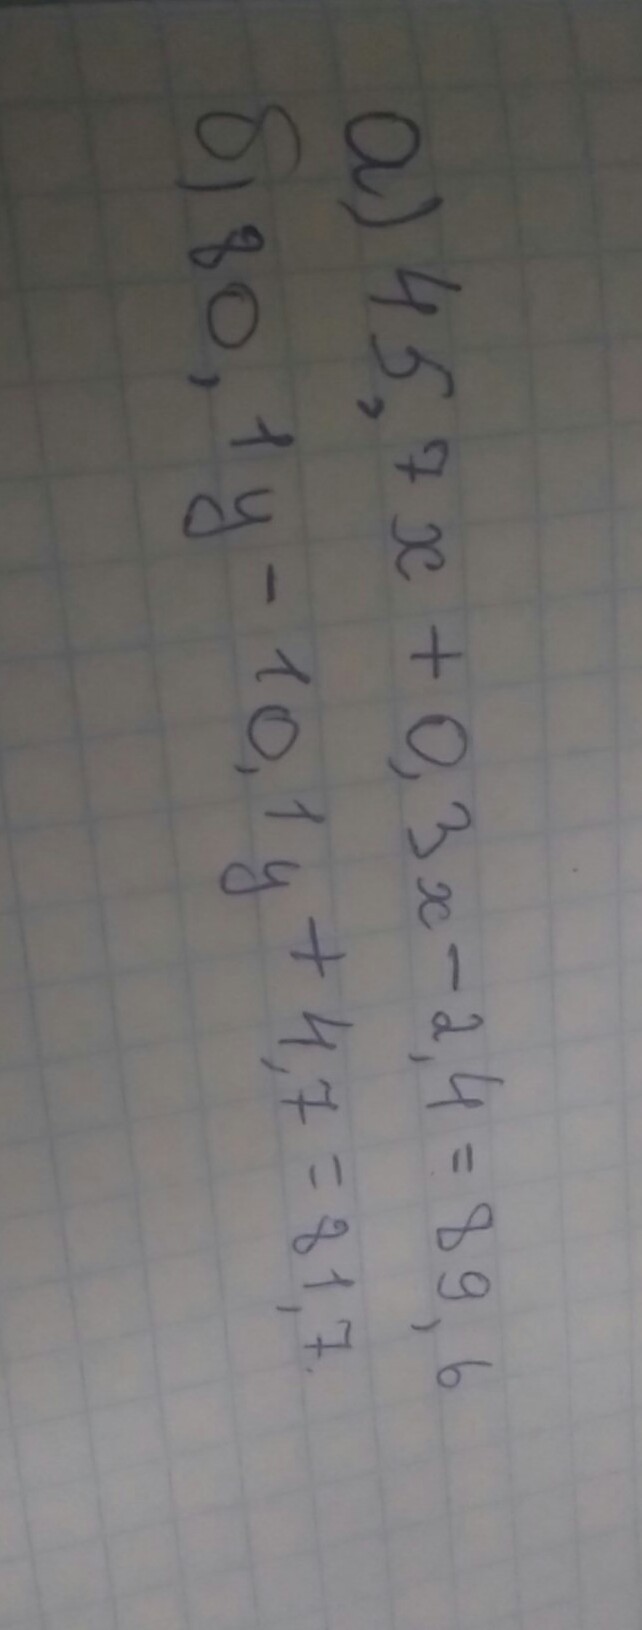 а) 45,7x + 0,3x - 2,4 = 89,6
б) 80,1y - 10,1y + 4,7 = 81,7.